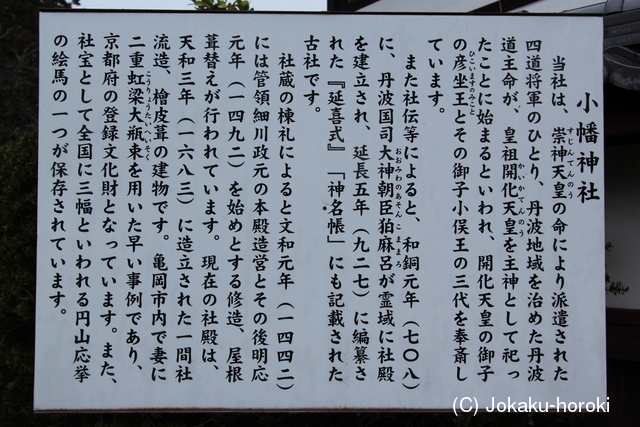 小幡神社
当社は、崇神天皇の命により派遣された
すじんてんのう
四道将軍のひとり、丹波地域を治めた丹波
道主命が、皇祖開化天皇を主神として祀っ
かいかてんのう
たことに始まるといわれ、開化天皇の御子
の彦坐王とその御子小俣王の三代を奉斎し
ひこいますのみこと
ています。
また社伝等によると、和銅元年（七〇八）
に、丹波国司大神朝臣狛麻呂が霊域に社殿
おおみわのあそんこままろ
を建立され、延長五年（九二七）に編纂さ
れた『延喜式』「神名帳」にも記載された
古社です。
社蔵の棟札によると文和元年（一四四二）
には管領細川政元の本殿造営とその後明応
元年（一四九二）を始めとする修造、屋根
葺替えが行われています。現在の社殿は、
天和三年（一六八三）に造立された一間社
流造、檜皮葺の建物です。亀岡市内で妻に
二重虹梁大瓶束を用いた早い事例であり、
こうりょうたいへいそく
京都府の登録文化財となっています。また、
社宝として全国に三幅といわれる円山応挙
の絵馬の一つが保存されています。
(C) Jokaku-horoki